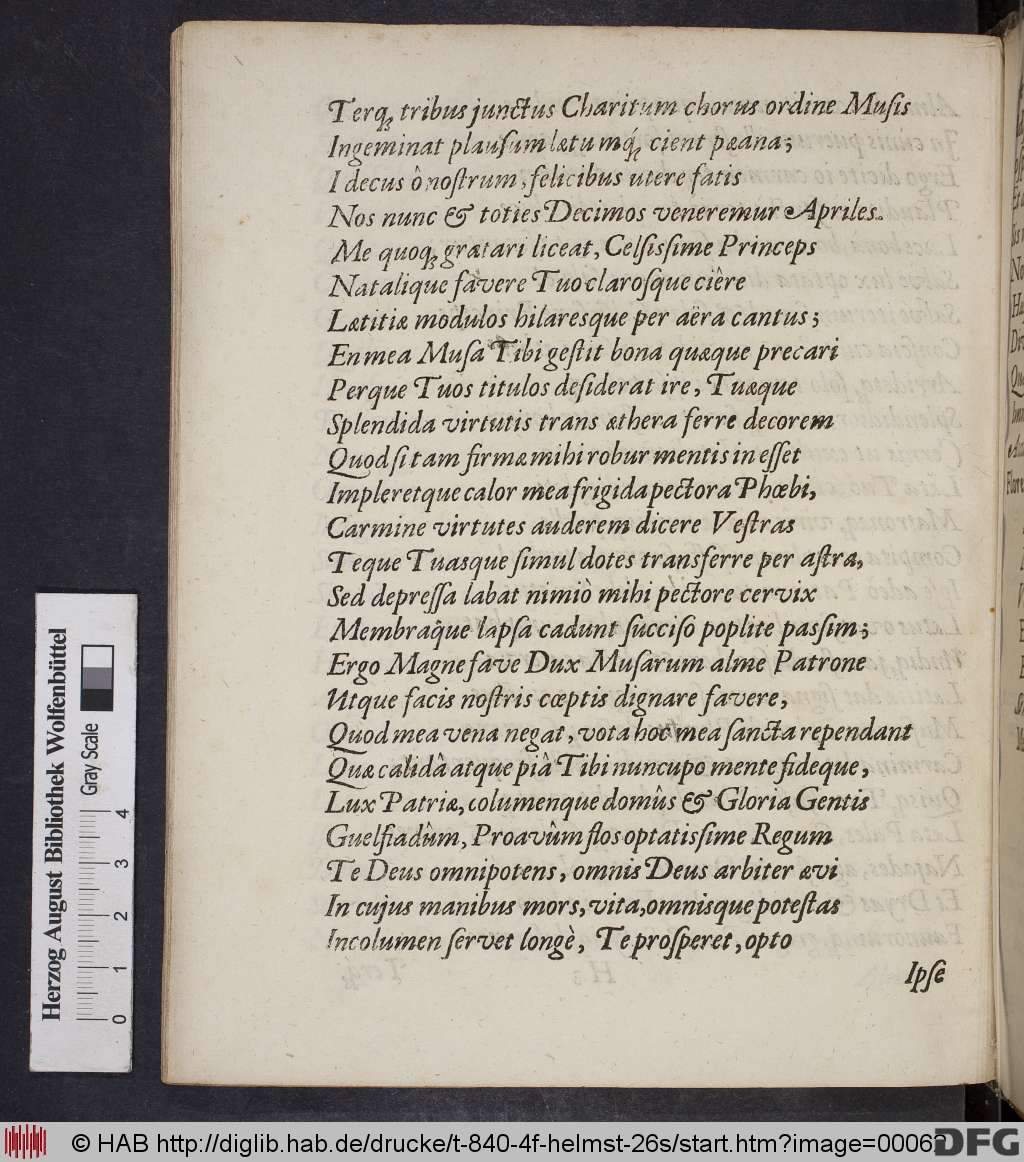 Terq́; tribus junctus Charitum chorus ordine Muſis
Ingeminat plauſum lætumq́; cient pæana;
I decus ô noſtrum, felicibus utere fatis
Nos nunc & toties Decimos veneremur Apriles.
Me quoq; grætari liceat, Celſiſſime Princeps
Natalique favere Tuo claroſque ciêre
Lætitiæ modulos hilaresque per aëra cantus;
En mea Muſa Tibi geſtit bona quæque precari
Perque Tuos titulos deſiderat ire, Tuæque
Splendida virtutis trans æthera ferre decorem
Quod ſi tam firmæ mihi robur mentis ineſſet
Impleretque calor mea frigida pectora Phœbi,
Carmine virtutes auderem dicere Veſtras
Teque Tuasque ſimul dotes transferre per aſtra,
Sed depreſſa labat nimiò mihi pectore cervix
Membraq̃ue lapſa cadunt ſucciſo poplite paſſim;
Ergo Magne fave Dux Muſarum alme Patrone
Utque facis noſtris cœptis dignare favere,
Quod mea vena negat, vota hoc mea ſancta rependant
Quæ calidâ atque piâ Tibi nuncupo mente fideque,
Lux Patriæ, columenque domûs & Gloria Gentis
Guelfiadûm, Proavûm flos optatiſſime Regum
Te Deus omnipotens, omnis Deus arbiter ævi
In cujus manibus mors, vita, omnisque poteſtas
Incolumen ſervet longè, Te proſperet, opto
Ipſe
Herzog August Bibliothek Wolfenbüttel
Gray Scale
0 1 2 3 4
© HAB http://diglib.hab.de/drucke/t-840-4f-helmst-26s/start.htm?image=00062
DFG